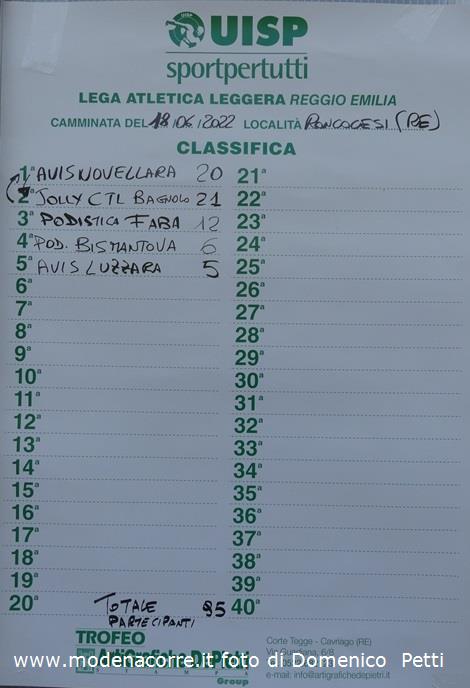 UISP
sportpertutti
LEGA ATLETICA LEGGERA REGGIO EMILIA
CAMMINATA DEL 18/06/2022 LOCALITÀ RONCOCESI (RE)
CLASSIFICA
1ª AVIS NOVELLARA 20
2ª JOLLY CTL BAGNOLO 21
3ª PODISTICA FABA 12
4ª POD. BISMANTOVA 6
5ª AVIS LUZZARA 5
6ª
7ª
8ª
9ª
10ª
11ª
12ª
13ª
14ª
15ª
16ª
17ª
18ª
19ª
20ª TOTALE PARTECIPANTI 95
21ª
22ª
23ª
24ª
25ª
26ª
27ª
28ª
29ª
30ª
31ª
32ª
33ª
34ª
35ª
36ª
37ª
38ª
39ª
40ª
TROFEO
ArtiGrafiche De Pietri
STAMPA
Group
Corte Tegge - Cavriago (RE)
e-mail: info@artigrafichedepietri.it
www.modenacorre.it foto di Domenico Petti